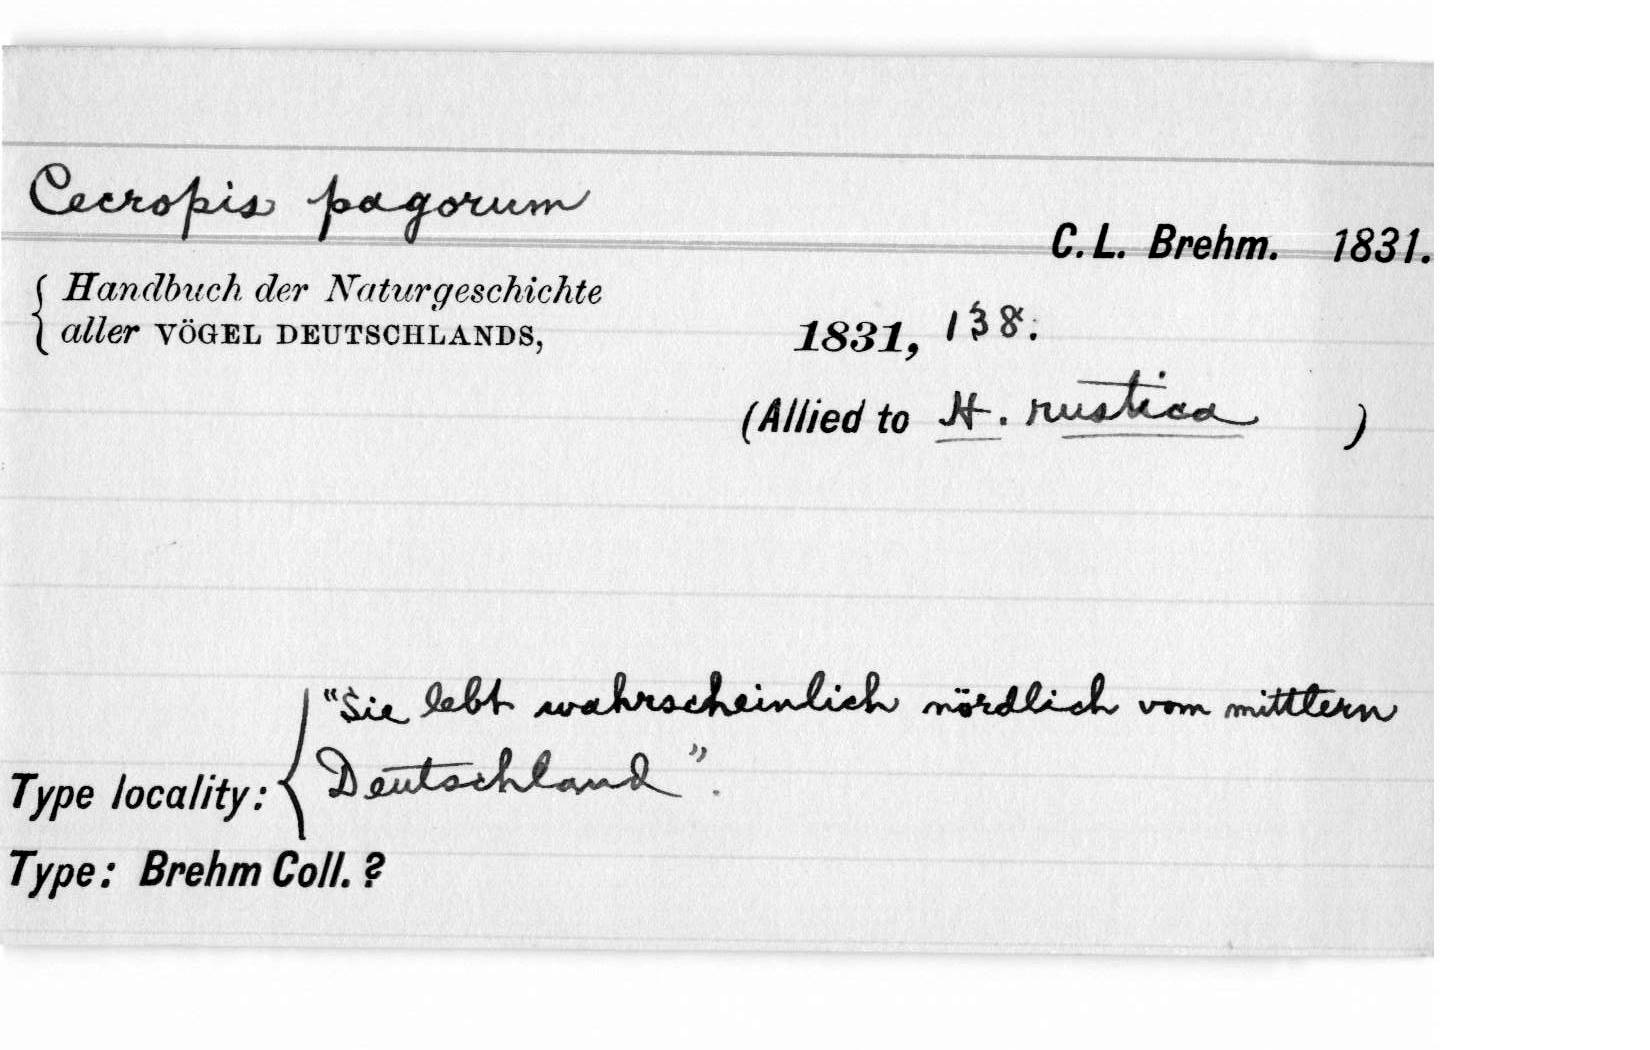 Cecropis pagorum
C. L. Brehm. 1831.
Handbuch der Naturgeschichte
aller VÖGEL DEUTSCHLANDS,
1831, 138.
(Allied to H. rustica )
"Sie lebt wahrscheinlich nördlich vom mittlern
Deutschland".
Type locality:
Type: Brehm Coll. ?